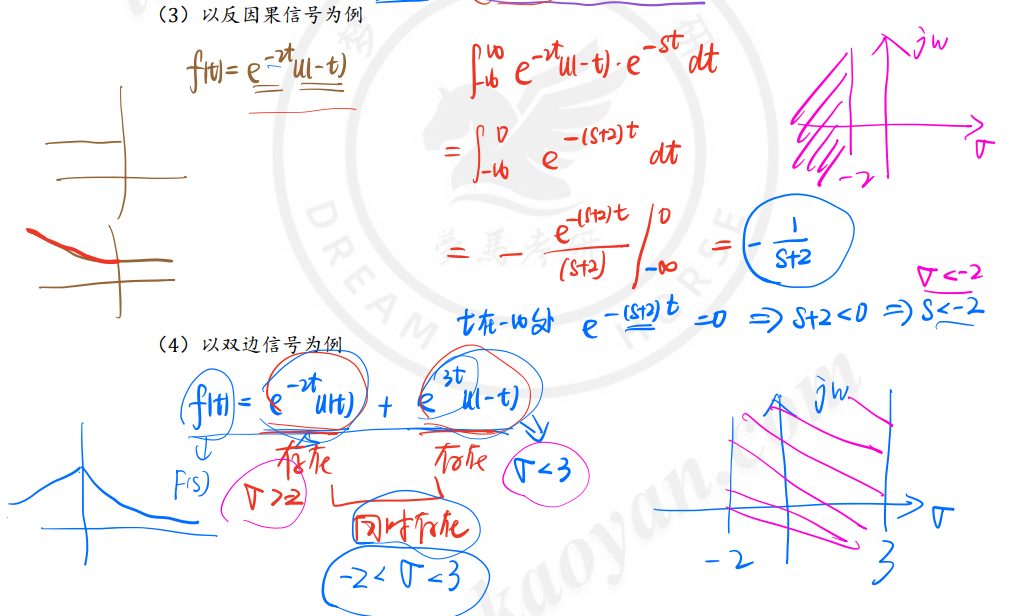 （3）以反因果信号为例
f(t)= e^{-2t}u(-t)
∫_{-∞}^{∞} e^{-2t}u(-t)·e^{-st} dt
= ∫_{-∞}^{0} e^{-(s+2)t} dt
= - e^{-(s+2)t}/(s+2) |_{-∞}^{0} = - 1/(s+2)
jw
σ
-2
σ<-2
t在-∞处 e^{-(s+2)t} =0 ⇒ s+2<0 ⇒ s<-2
（4）以双边信号为例
f(t)= e^{-2t}u(t) + e^{3t}u(-t)
F(s)
存在
存在
σ>2
σ<3
同时存在
-2<σ<3
jw
σ
-2
3
DREAM HORSE
kaoyan.com